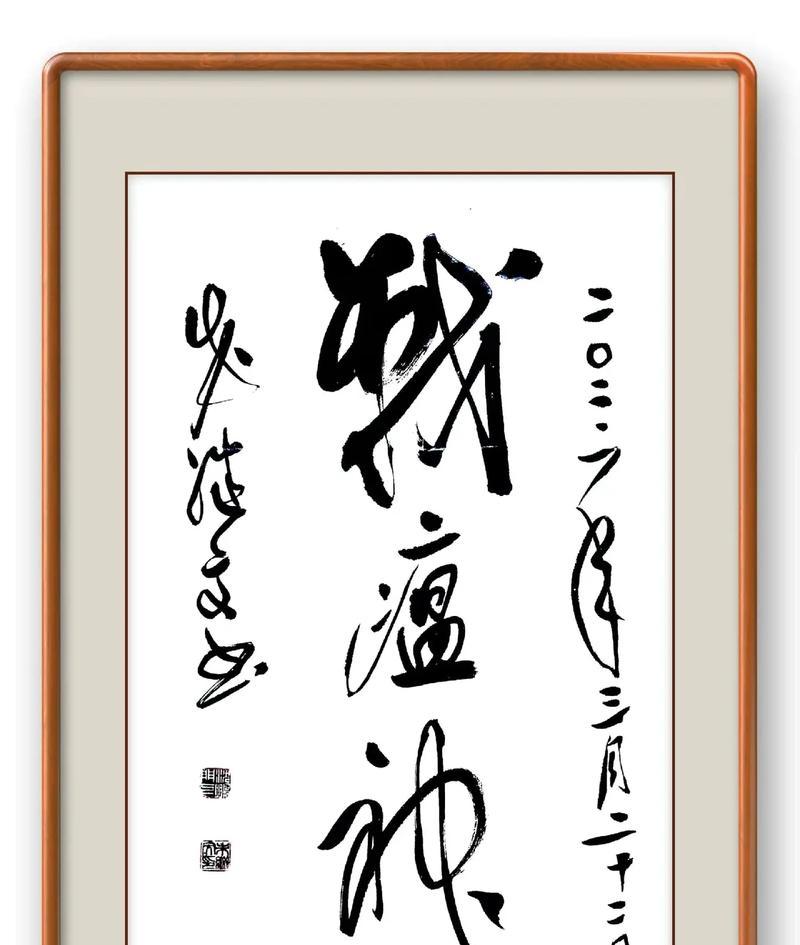 二〇二二年三月二十二
戰瘟神
朱文书